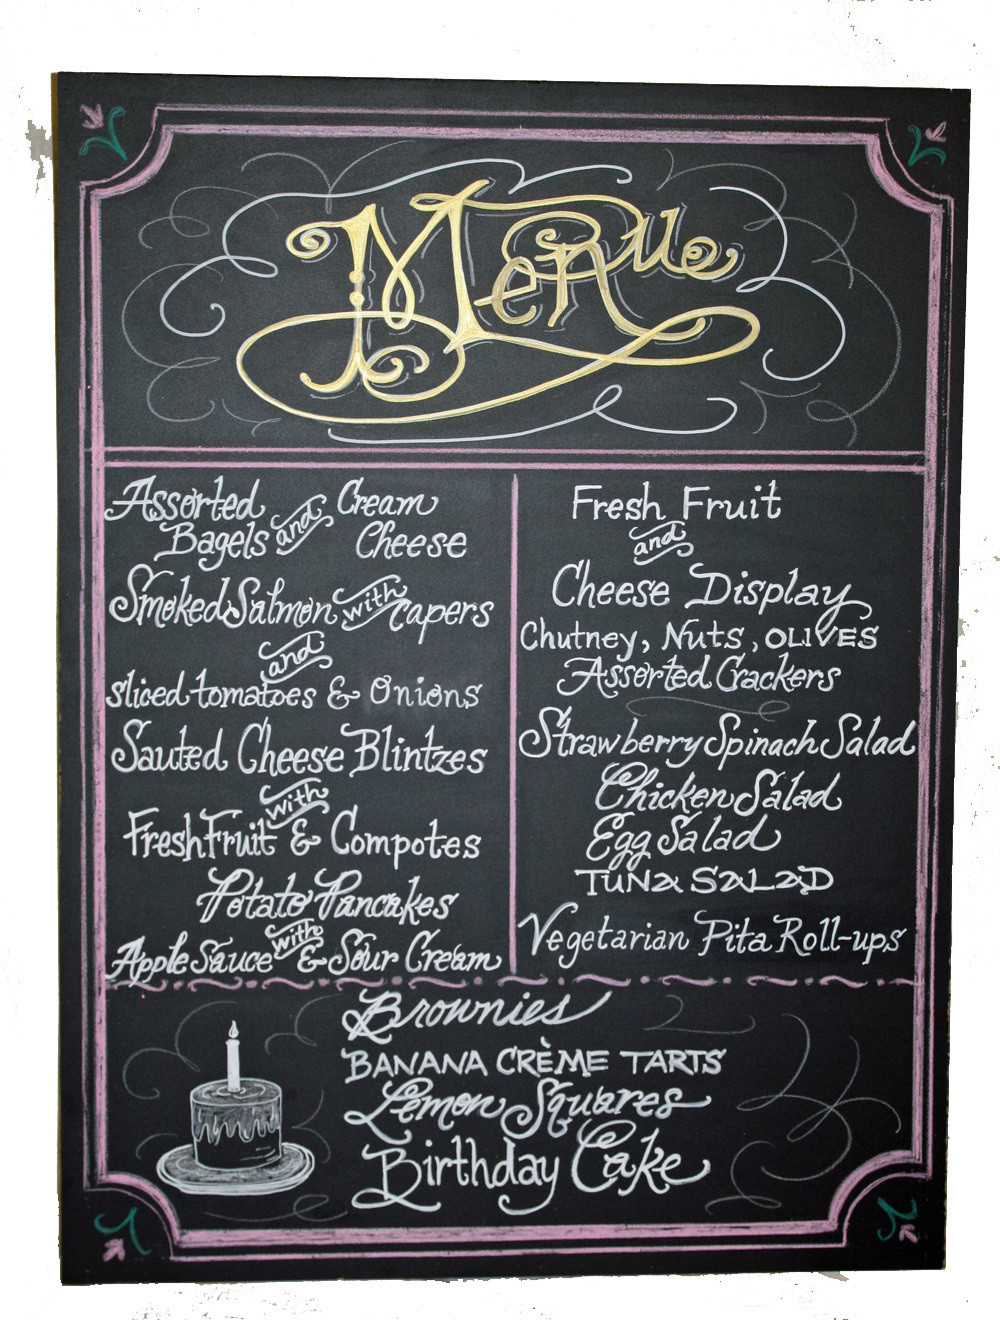 Menue
Assorted and Cream
Bagels Cheese
Smoked Salmon with Capers
and
sliced tomatoes & Onions
Sauted Cheese Blintzes
with
Fresh Fruit & Compotes
Potato Pancakes
with
Apple Sauce & Sour Cream
Fresh Fruit
and
Cheese Display
Chutney, Nuts, OLIVES
Assorted Crackers
Strawberry Spinach Salad
Chicken Salad
Egg Salad
TUNa SALaD
Vegetarian Pita Roll-ups
Brownies
BANANA CRÈME TARTS
Lemon Squares
Birthday Cake